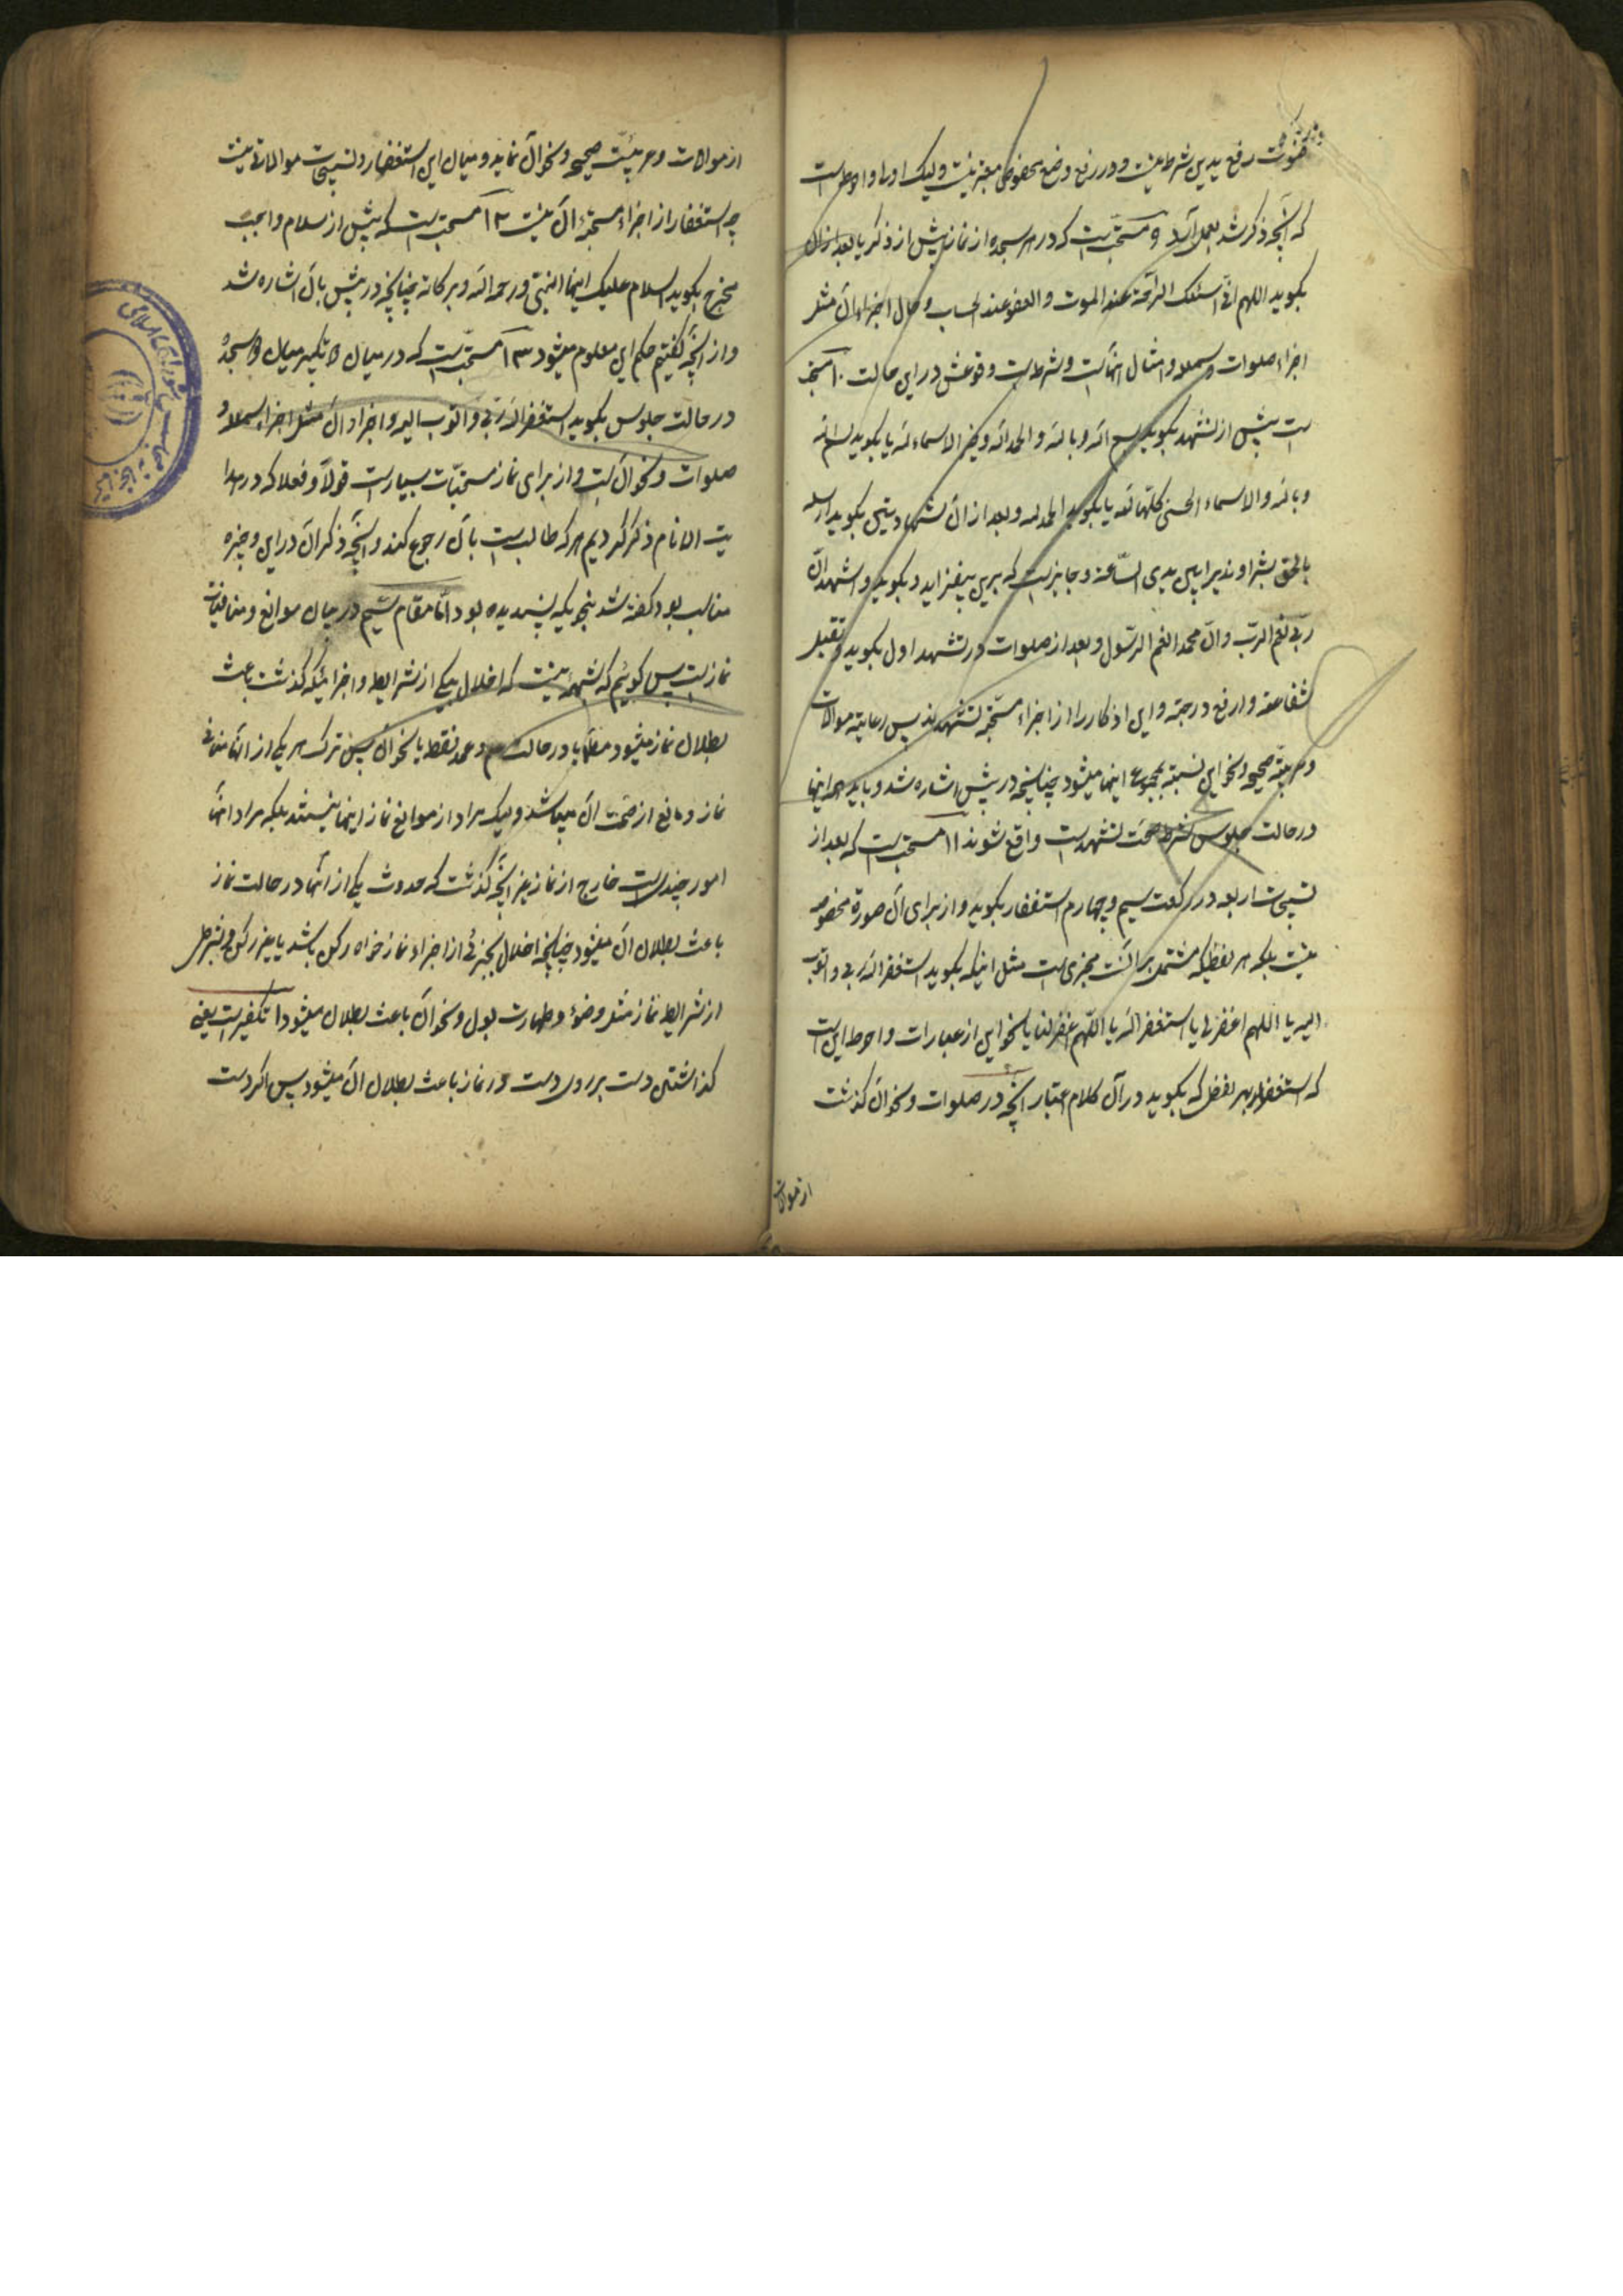 قنوت رفع یدین شرط نیست و در رفع وضع مخصوصی معتبر نیست ولیک اولی و احوط است
که آنچه ذکر شد بعمل آید ۹ مستحب است که در هر سجده از نماز پیش از ذکر یا بعد از آن
بگوید اللهم انی اسئلک الراحة عند الموت و العفو عند الحساب و حال اجزاء آن مثل
اجزاء صلوات و بسملة و امثال آنهاست و شرط است وقوعش در این حالت ۱۰ مستحب
است پیش از تشهد بگوید بسم الله و بالله و الحمد لله و خیر الاسماء لله یا بگوید بسم الله
و بالله و الاسماء الحسنی کلها لله یا بگوید الحمد لله و بعد از آن شهادتین بگوید ارسله
بالحق بشیرا و نذیرا بین یدی الساعة و جایز است که برین بیفزاید و بگوید و اشهد ان
ربی نعم الرب و ان محمدا نعم الرسول و بعد از صلوات در تشهد اول بگوید و تقبل
شفاعته و ارفع درجته و این اذکار را از اجزاء مستحبه تشهدند پس رعایت موالات
و عربیة صحیحه و نحو این نسبة بمجموع اینها میشود چنانچه در پیش اشاره شد و باید همه اینها
در حالت جلوس که شرط صحت تشهد است واقع شوند ۱۱ مستحب است که بعد از
تسبیحات اربعه در رکعت سیم و چهارم استغفار بگوید و از برای آن صورة مخصوصه
نیست بلکه هر لفظیکه مشتمل بر آنست مجزی است مثل اینکه بگوید استغفر الله ربی و اتوب
الیه یا اللهم اغفر لی یا استغفر الله یا اللهم اغفر لنا یا نحو این از عبارات و احوط این است
که استغفار بهر لفظی که بگوید در آن کلام اعتبار آنچه در صلوات و نحو آن گذشت
از موالات
از موالات و عربیت صحیحه و نحو آن نماید و میان این استغفار و تسبیحات موالاتی نیست
چه استغفار از اجزاء مستحبه آن نیست ۱۲ مستحب است که پیش از سلام واجب
مخرج بگوید السلام علیک ایها النبی و رحمة الله و برکاته چنانچه در پیش بآن اشاره شد
و از آنچه گفتیم حکم این معلوم میشود ۱۳ مستحب است که در میان تکبیر میان سجده
در حالت جلوس بگوید استغفر الله ربی و اتوب الیه و اجزاء آن مثل اجزاء بسمله و
صلوات و نحو آن است و از برای نماز مستحبات بسیار است قولا و فعلا که در هدا
یت الانام ذکر کردیم هر که طالب است بآن رجوع کند و آنچه ذکر آن در این وجیزه
مناسب بود گفته شد بنحویکه پسندیده بود اما مقام سیم در بیان موانع و منافیات
نماز است پس گوئیم که شبهه نیست که اخلال بیکی از شرایط و اجزائیکه گذشت باعث
بطلان نماز میشود مطلقا یا در حالت عمد فقط یا نحو آن پس ترک هر یکی از آنها منافی
نماز و مانع از صحت آن میباشد ولیک مراد از موانع نماز اینها نیستند بلکه مراد آنها
امور چند است خارج از نماز غیر آنچه گذشت که حدوث یکی از آنها در حالت نماز
باعث بطلان آن میشود چنانچه اخلال بجزئی از اجزاء نماز خواه رکن باشد یا غیر رکن و بشرطی
از شرایط نماز مثل وضوء و طهارت بول و نحو آن باعث بطلان میشود ۱ تکفیر است یعنی
گذاشتن دست بر روی دست در نماز باعث بطلان آن میشود پس اگر دست